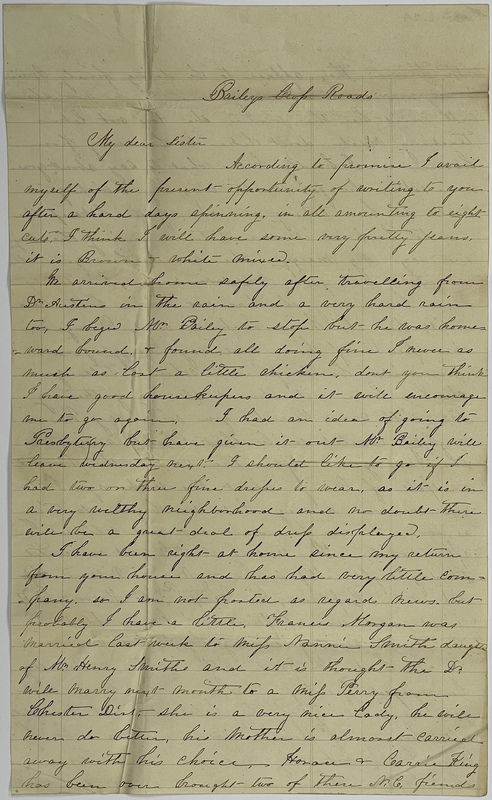 Baileys Cross Roads
My dear Sister
According to promise I avail
myself of the present opportunity of writing to you
after a hard days spinning, in all amounting to eight
cuts, I think I will have some very pretty jeans,
it is Brown & white mixed.
We arrived home safely after travelling from
Dr Austins in the rain and a very hard rain
too, I beged Mr Bailey to stop but he was home-
-ward bound, & found all doing fine I never as
much as lost a little chicken, dont you think
I have good housekeepers and it will encourage
me to go again. I had an idea of going to
Presbytery but have given it out Mr Bailey will
leave wednesday next. I should like to go if I
had two or three fine dresses to wear, as it is in
a very welthy neighborhood and no doubt there
will be a great deal of dress displayed.
I have been right at home since my return
from your house and has had very little com-
-pany, so I am not posted as regards news. but
probably I have a little. Francis Morgan was
married last week to Miss Nannie Smith daughter
of Mr Henry Smiths and it is thought the Dr
will marry next month to a Miss Perry from
Chester Dist. she is a very nice lady, he will
never do better, his Mother is almost carried
away with his choice. Horace & Carrie King
has been over brought two of there N.C. friends